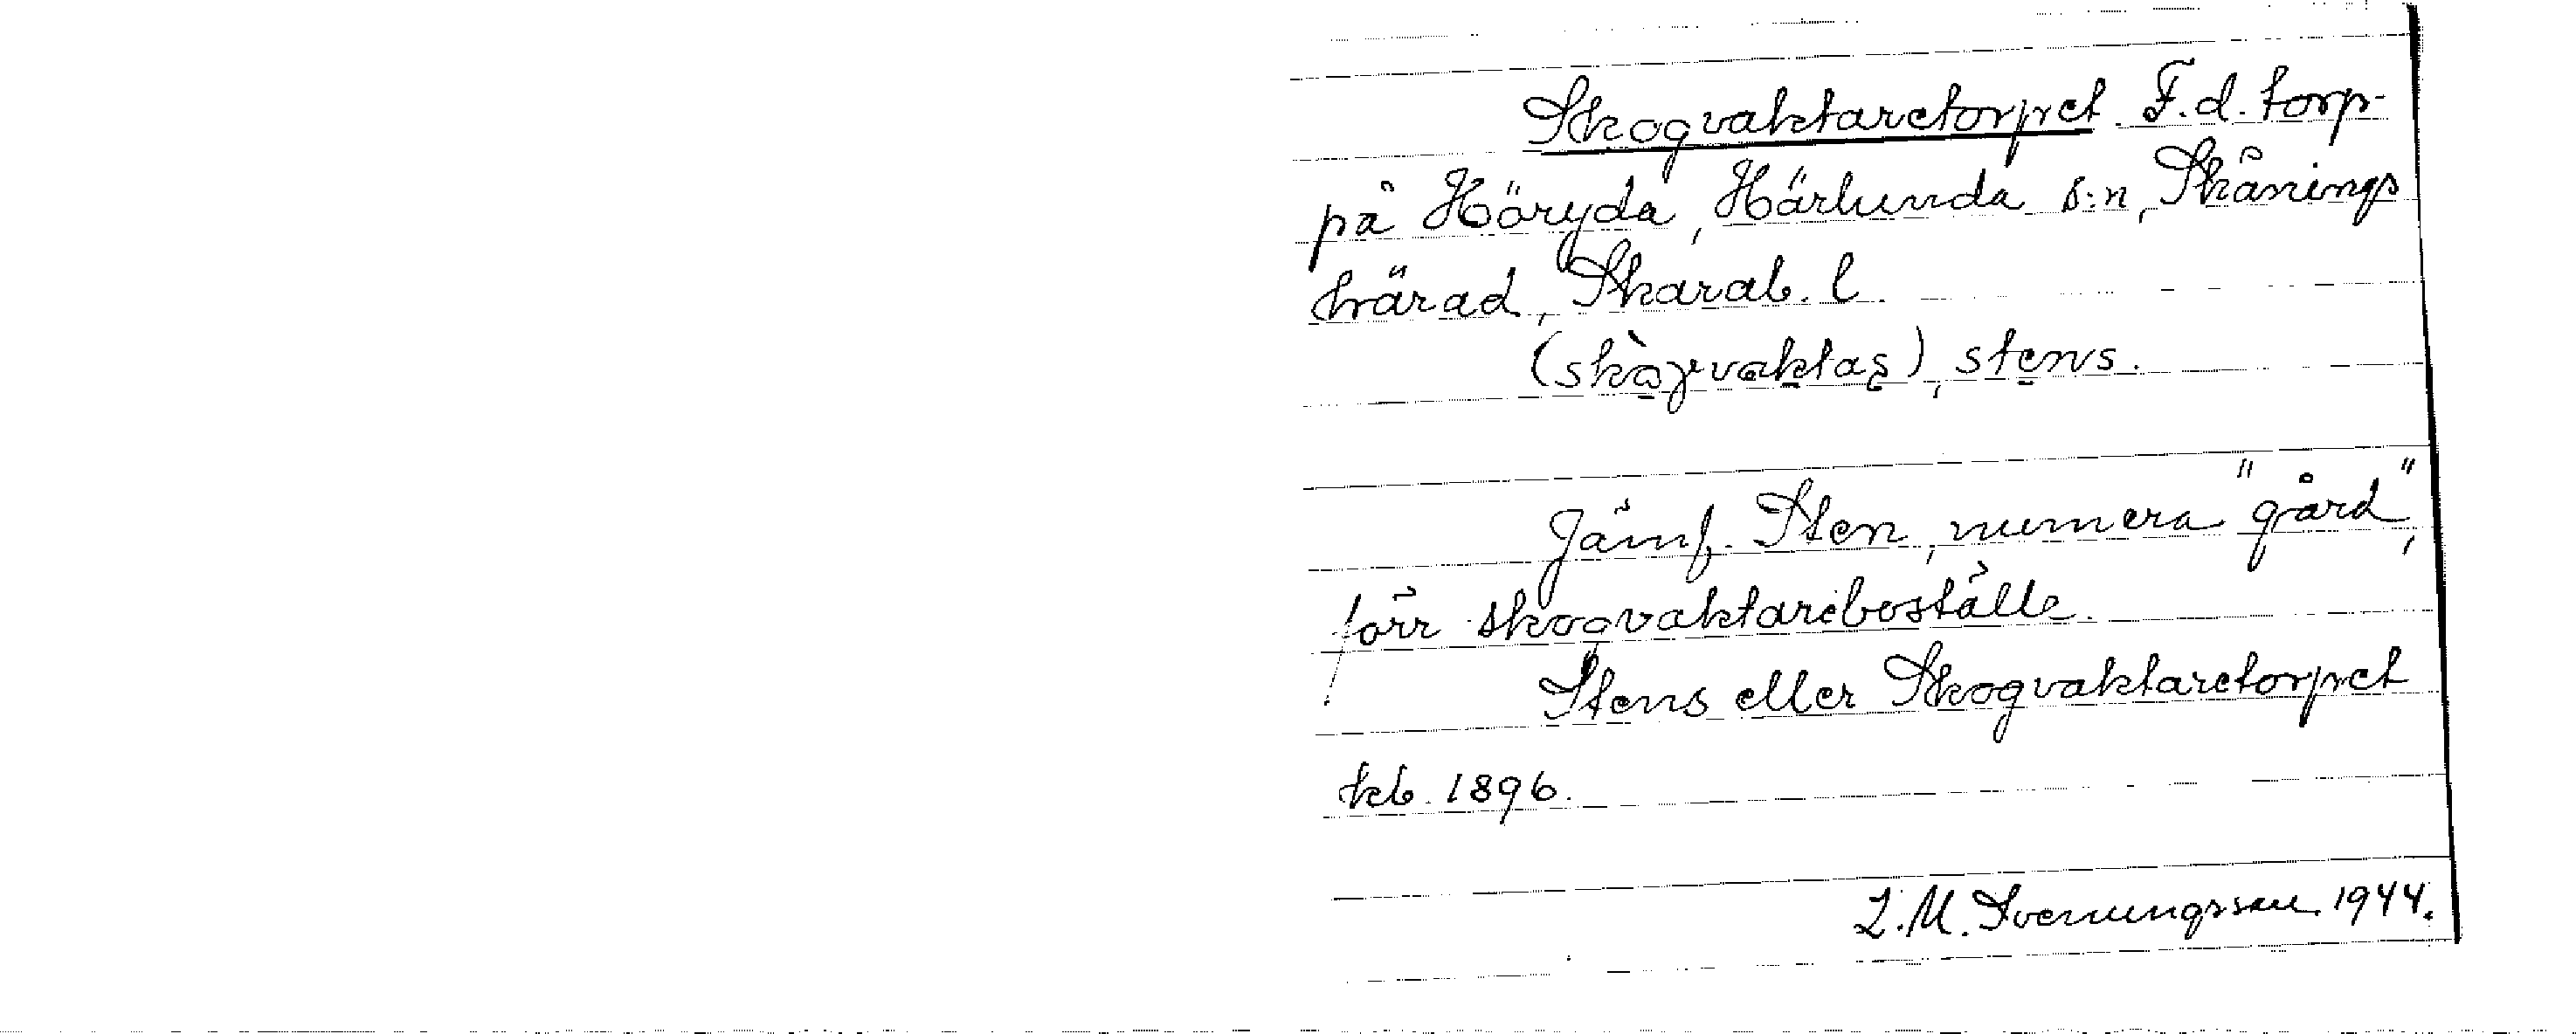 Skogvaktaretorpet F.d. torp
på Höryda, Härlunda s:n, Skånings
härad, Skarab. l.
(skògvaktas), stens.
Jämf. Sten, numera "gård",
förr skogvaktareboställe.
Stens eller Skogvaktaretorpet
kb. 1896.
L.M. Svenungsson 1944.